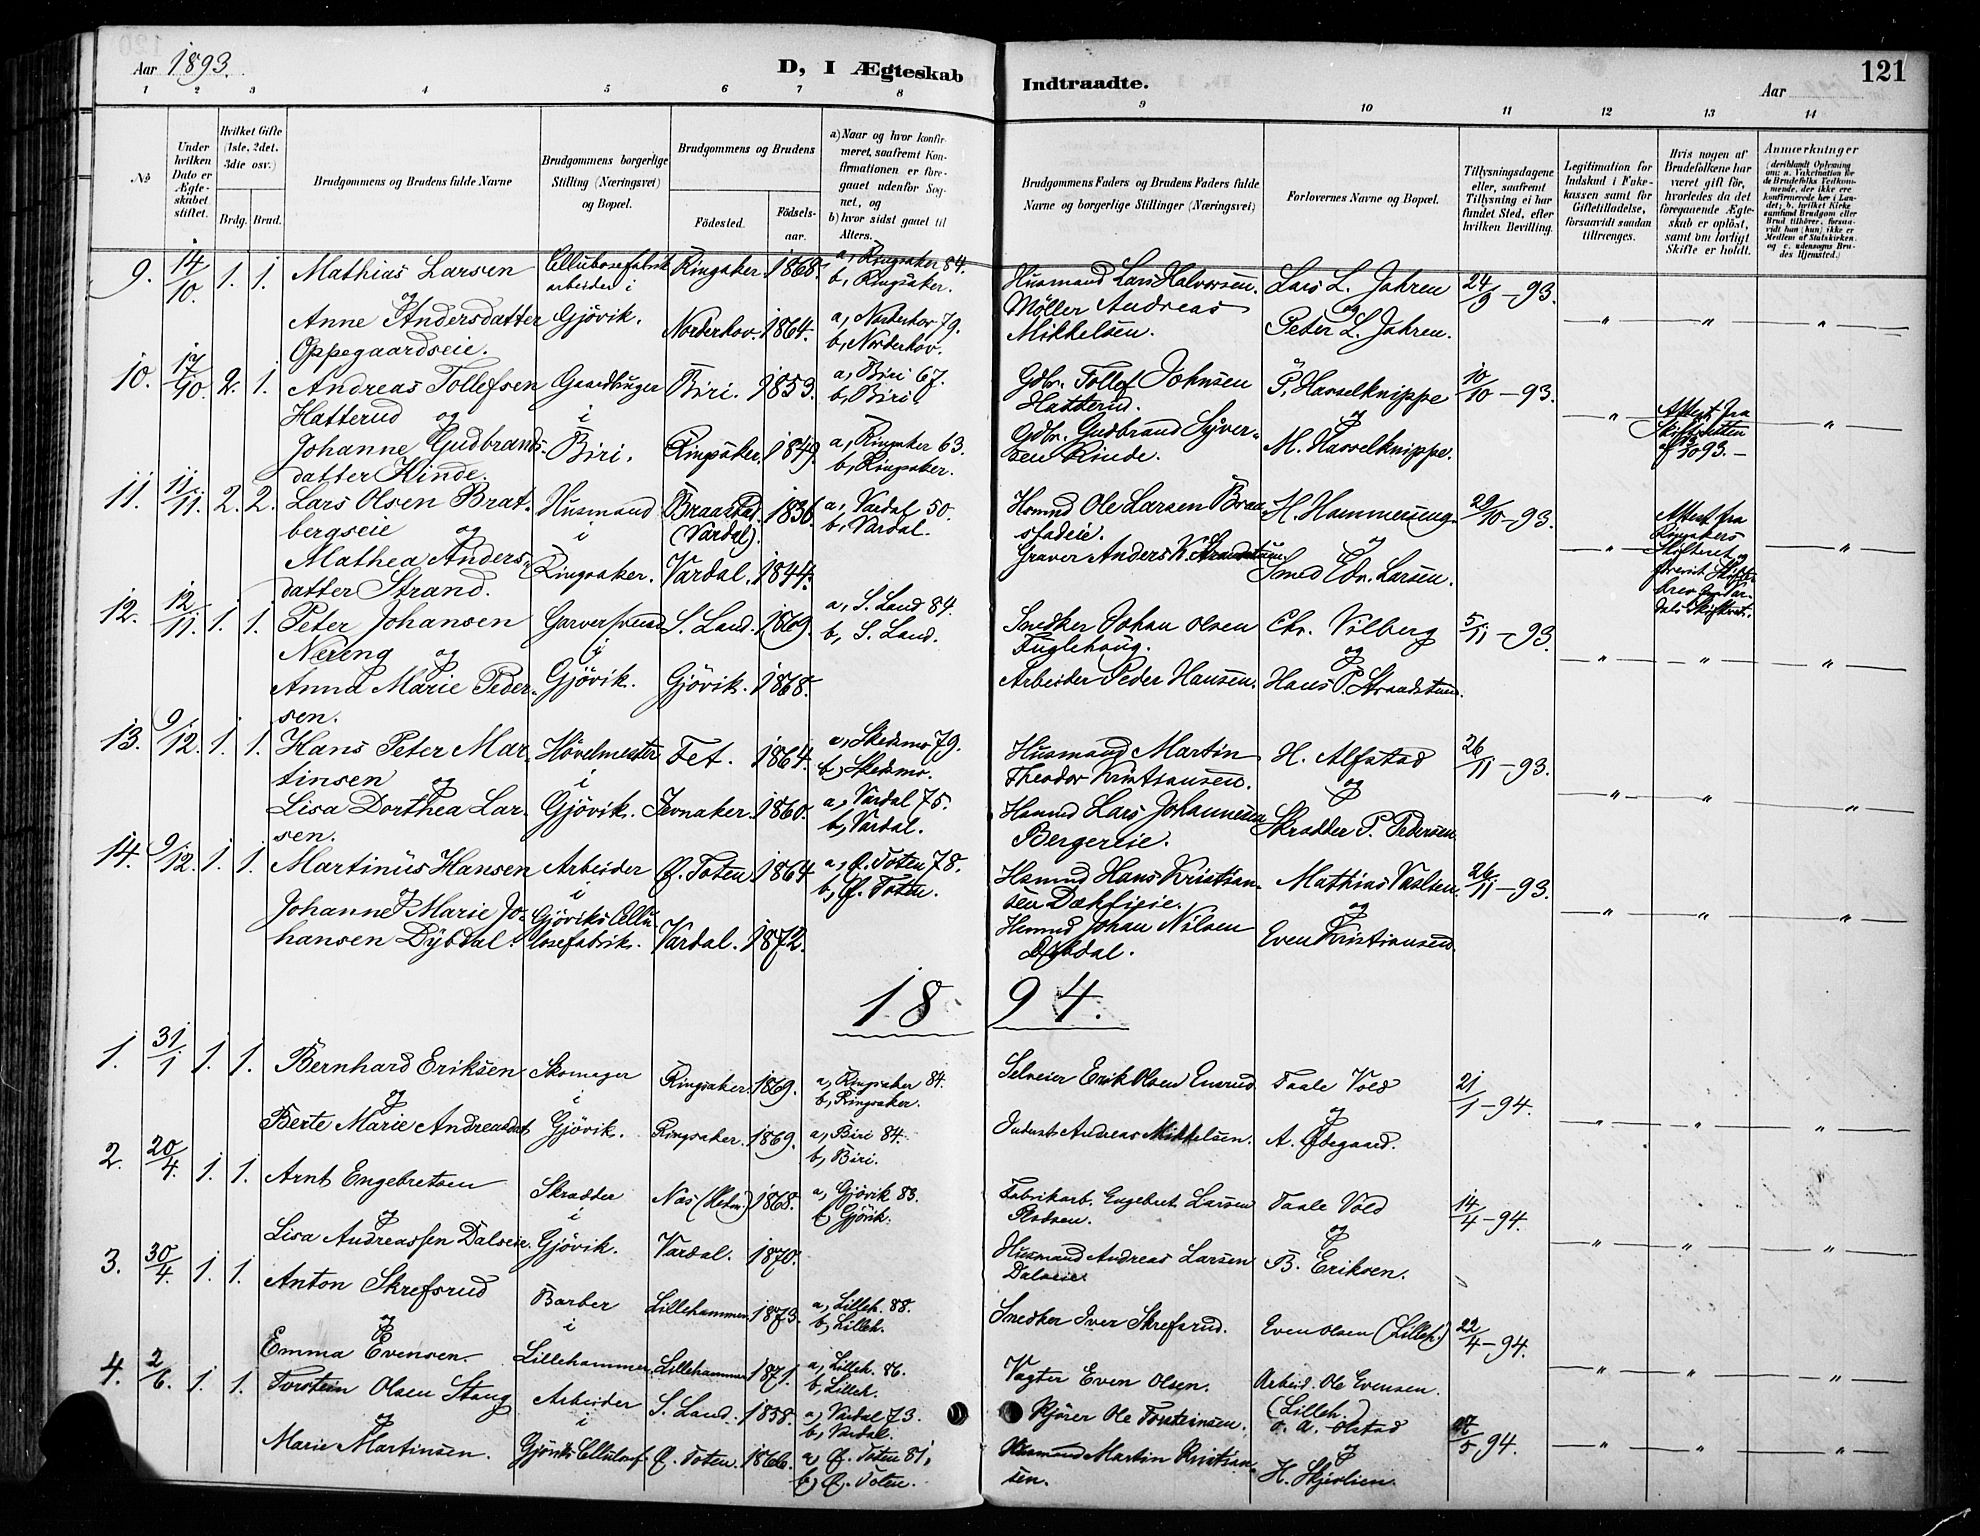 Aar 1893.
D, I Ægteskab
Indtraadte.
Aar
121
1 2 3 4 5 6 7 8 9 10 11 12 13 14
No
Under hvilken Dato er Ægteskabet stiftet.
Hvilket Gifte (1ste, 2det, 3die osv.)
Brdg. Brud.
Brudgommens og Brudens fulde Navne
Brudgommens borgerlige Stilling (Næringsvei) og Bopæl.
Brudgommens og Brudens
Födested.
Födselsaar.
a) Naar og hvor konfirmeret, saafremt Konfirmationen er foregaaet udenfor Sognet, og
b) hvor sidst gaaet til Alters.
Brudgommens Faders og Brudens Faders fulde Navne og borgerlige Stillinger (Næringsvei)
Forlovernes Navne og Bopæl.
Tillysningsdagene eller, saafremt Tillysning ei har fundet Sted, efter hvilken Bevilling.
Legitimation for Indskud i Enkekassen samt for Giftetilladelse, forsaavidt saadan tiltrænges.
Hvis nogen af Brudefolkene har været gift för, hvorledes da det foregaaende Ægteskab er oplöst, samt om lovligt Skifte er holdt.
Anmærkninger
9. 14/10. 1. 1. Mathias Larsen Cellulosefabrik Ringsaker 1868. a, Ringsaker 84. Husmand Lars Halvorsen. Lars L. Jahren 24/9 - 93.
og arbeider i b, Ringsaker. Møller Andreas og
Anne Andersdatter Gjövik. Norderhov. 1864. a, Norderhov 79. Mikkelsen. Peter L. Jahren. " " "
Oppegaardseie. b, Norderhov.
10. 17/10. 2. 1. Andreas Tollefsen Gaardbruger Biri. 1853. a, Biri 67. Gdbr. Tollef Johnsen P. Hasselknippe 10/10 - 93.
Hatterud og i b, Biri. Hatterud. og Attest fra
Johanne Gudbrands- Biri. Ringsaker. 1849. a, Ringsaker 63. Gdbr. Gudbrand Syver- M. Hasselknippe. " Skifteretten "
datter Kinde. b, Ringsaker. sen Kinde.
11. 11/11. 2. 2. Lars Olsen Brat- Husmand Braastad 1836. a, Vardal 50. Hsmnd Ole Larsen Braa- H. Hammerseng 29/10 - 93. Attest fra
bergseie og i (Vardal). b, Vardal. stadeie. og Ringsakers
Mathea Anders- Ringsaker. Vardal. 1844. Graver Anders K. Smed Edv. Larsen. " Skifteret og "
datter Strand.
12. 12/11. 1. 1. Peter Johansen Garversvend S. Land. 1869. a, S. Land 84. Snedker Johan Olsen Chr. Vilberg 5/11 - 93.
Næreng og i b, S. Land. Fuglehaug. og
Anna Marie Peder- Gjövik. Gjövik. 1868. Arbeider Peder Hansen. Hans P. " " "
sen.
13. 9/12. 1. 1. Hans Peter Mar- Hövelmester Fet. 1864. a, Skedsmo 79. Husmand Martin H. Alfstad 26/11 - 93.
tinsen og i b, Skedsmo. Theodor Kristiansen. og
Lisa Dorthea Lar- Gjövik. Jevnaker. 1860. a, Vardal 75. Hsmnd Lars Johannesen Skrædder P. Pedersen " " "
sen. b, Vardal. Bergereie.
14. 9/12. 1. 1. Martinüs Hansen Arbeider Ø. Toten. 1864 a, Ø. Toten 78. Hsmnd Hans Kristian- Mathias 26/11 - 93.
og i b, Ø. Toten. sen og
Johanne Marie Jo- Gjöviks Cellu- Hsmnd Johan Nilsen " " "
hansen Dybdal. losefabrik. Vardal. 1872. Dybdal. Even Kristiansen.
1894.
1. 31/1 1. 1. Bernhard Eriksen Skomager Ringsaker 1869. a, Ringsaker 84. Selveier Erik Olsen Taale Vold 21/1 - 94.
og i b, Ringsaker. og
Berte Marie Andreasdat Gjövik. Ringsaker. 1869. a, Biri 84. Industr. Andreas Mikkelsen. A. Ødegaard. " " "
b, Biri.
2. 20/4. 1. 1. Arnt Engebretsen Skrædder Nes (Hedm) 1868. a, Gjövik 83. Fabrikarb. Engebret Larsen Taale Vold 14/4 - 94.
og i b, Gjövik. og
Lisa Andreassen Dalseie. Gjövik. Vardal. 1870. Husmand Andreas Larsen B. Eriksen. " " "
Dalseie.
3. 30/4. 1. 1. Anton Skrefsrud Barber Lillehammer 1873. a, Lilleh. 88. Snedker Iver Skrefsrud. Even Olsen (Lilleh.) 22/4 - 94.
og i b, Lilleh.
Emma Evensen. Lillehammer. Lillehammer 1871. a, Lilleh. 86. Vagter Even Olsen. Arbeid. Ole Evensen. " " "
b, Lilleh. (Lilleh.)
4. 2/6. 1. 1. Torstein Olsen Stang Arbeider S. Land. 1858. a, Vardal 73. Kjører Ole Torsteinsen. O. A. Olstad 5, 94.
og i b, Vardal. og
Marie Martinsen. Gjöviks Cellulosef. Ø. Toten. 1866. a, Ø. Toten 81, Husmand Martin Kristian- H. Skjerlien. " " "
b, Ø. Toten. sen.